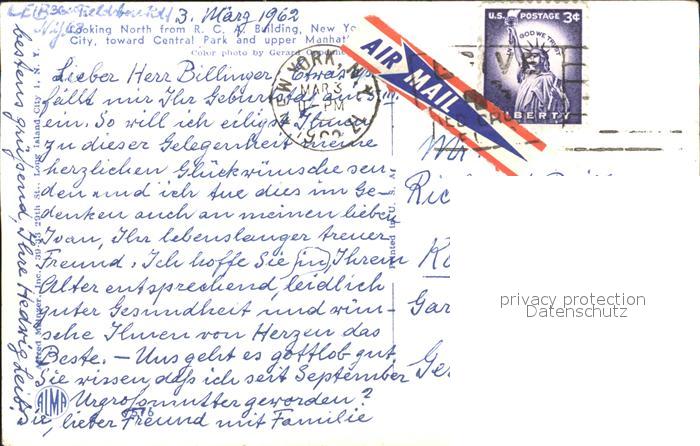 3. März 1962
Looking North from R. C. A. Building, New Yo
City, toward Central Park and upper Manhat
Color photo by Gerard
Lieber Herr Billinger Etwas
fällt mir Ihr Geburtstag
ein. So will ich eiligst Ihnen
zu dieser Gelegenheit meine
herzlichen Glückwünsche sen-
den und ich tue dies im Ge-
denken auch an meinen lieben
Ivan, Ihr lebenslanger treuer
Freund. Ich hoffe Sie in Ihrem
Alter entsprechend, leidlich
guter Gesundheit und wün-
sche Ihnen von Herzen das
Beste. – Uns geht es gottlob gut.
Sie wissen daß ich seit September
Urgroßmutter geworden?
Sie, lieber Freund mit Familie
bestens grüßend, Ihre Hedwig
Long Island City 1, N. Y.
ALMA
AIR MAIL
NEW YORK, N.Y.
MAR 3
PM
1962
U.S. POSTAGE 3¢
IN GOD WE TRUST
LIBERTY
Ric
Gar
Ge
privacy protection
Datenschutz